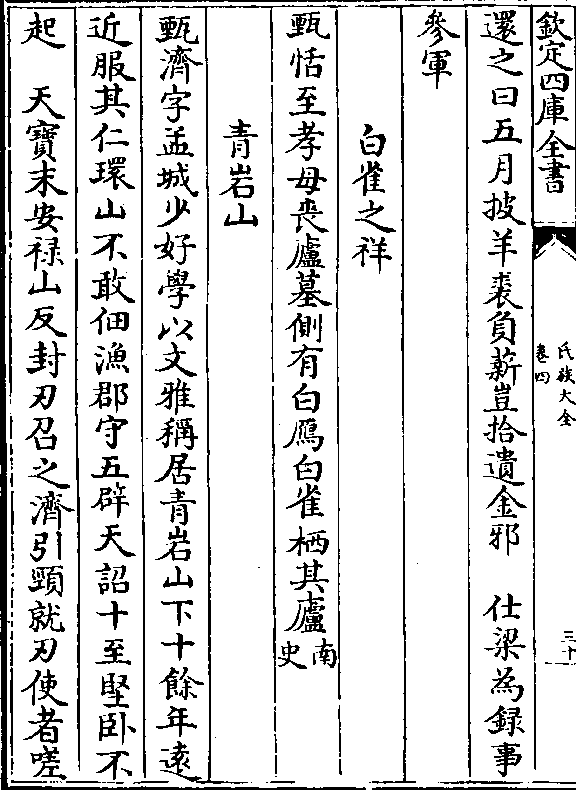 欽定四庫全書
氏族大全
卷四
三十
還之曰五月披羊裘負薪豈拾遺金邪　仕梁為録事
參軍
白雀之祥
甄恬至孝母喪廬墓側有白鴈白雀栖其廬南史
青岩山
甄濟字孟城少好學以文雅稱居青岩山下十餘年逺
近服其仁環山不敢佃漁郡守五辟天詔十至堅卧不
起　天寶末安禄山反封刃召之濟引頸就刃使者嗟